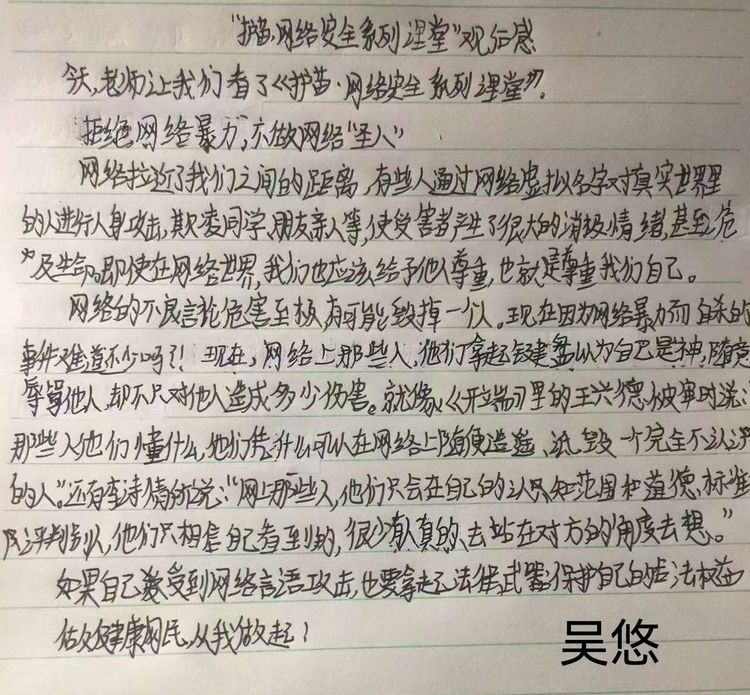 “护苗·网络安全系列课堂”观后感
今天,老师让我们看了《护苗·网络安全系列课堂》。
拒绝网络暴力,不做网络“圣人”
网络拉近了我们之间的距离,有些人通过网络虚拟名字对真实世界里
的人进行人身攻击,欺凌同学,朋友亲人等,使受害者产生了很大的消极情绪,甚至危
及生命。即使在网络世界,我们也应该给予他人尊重,也就是尊重我们自己。
网络的不良言论危害至极,有可能毁掉一个人。现在因为网络暴力而自杀的
事件难道不少吗?!现在,网络上那些人,他们拿起键盘以为自己是神,随意
辱骂他人,却不只对他人造成多少伤害。就像《开端》里的王兴德被审时说:
那些人他们懂什么,他们凭什么可以在网络上随便造谣、诋毁一个完全不认识
的人。”还有李诗情所说:“网上那些人,他们只会在自己的认只知范围和道德、标准
评判别人,他们只相信自己看到的,很少有人真的、去站在对方的角度去想。”
如果自己受到网络言语攻击,也要拿起法律武器保护自己的合法权益
做健康网民,从我做起!
吴悠